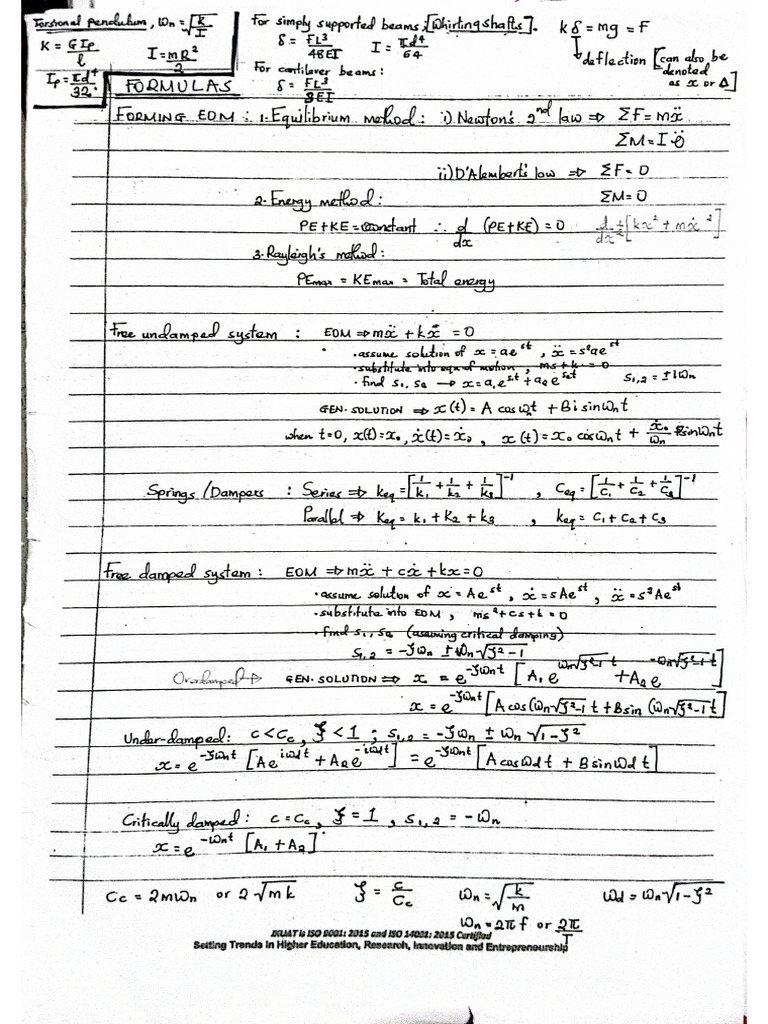 Torsional pendulum, ωn = √(k/I)
K = GIp/l
I = mR²/2
Ip = πd⁴/32
For simply supported beams, [Whirling shafts].
δ = FL³/48EI    I = πd⁴/64
For cantilever beams:
δ = FL³/3EI
kδ = mg = F
deflection [can also be denoted as x or Δ]
FORMULAS
FORMING EOM: 1. Equilibrium method: i) Newton's 2nd law ⇒ ΣF = mẍ
ΣM = I·θ̈
ii) D'Alembert's law ⇒ ΣF = 0
2. Energy method: ΣM = 0
PE + KE = constant ∴ d/dx (PE + KE) = 0
3. Rayleigh's method:
PEmax = KEmax = Total energy
Free undamped system : EOM ⇒ mẍ + kx = 0
• assume solution of x = ae^st, ẍ = s²ae^st
• substitute into eqn of motion, ms + k = 0
• find s₁, s₂ → x = a₁e^s₁t + a₂e^s₂t    s₁,₂ = ± iωn
GEN. SOLUTION ⇒ x(t) = A cos ωnt + Bi sin ωnt
when t=0, x(t) = x₀, ẋ(t) = ẋ₀, x(t) = x₀ cos ωnt + ẋ₀/ωn sin ωnt
Springs / Dampers : Series ⇒ keq = [1/k₁ + 1/k₂ + 1/k₃]⁻¹ , Ceq = [1/C₁ + 1/C₂ + 1/C₃]⁻¹
Parallel ⇒ keq = k₁ + k₂ + k₃ , keq = C₁ + C₂ + C₃
Free damped system : EOM ⇒ mẍ + cẋ + kx = 0
• assume solution of x = Ae^st, ẋ = sAe^st, ẍ = s²Ae^st
• substitute into EOM, ms² + cs + k = 0
• find s₁, s₂ (assuming critical damping)
s₁,₂ = -ζωn ± ωn√(ζ² - 1)
Overdamped → GEN. SOLUTION ⇒ x = e^-ζωnt [A₁e^(ωn√(ζ²-1) t) + A₂e^(-ωn√(ζ²-1) t)]
x = e^-ζωnt [A cos(ωn√(ζ²-1) t + B sin (ωn√(ζ²-1) t]
Under-damped: c < Cc, ζ < 1 ; s₁,₂ = -ζωn ± ωn √(1-ζ²)
x = e^-ζωnt [Ae^iωdt + A₂e^-iωdt] = e^-ζωnt [A cos ωd t + B sin ωd t]
Critically damped: c = Cc, ζ = 1, s₁,₂ = -ωn
x = e^-ωnt [A₁ + A₂]
Cc = 2mωn or 2√mk    ζ = c/Cc    ωn = √(k/m)    ωd = ωn√(1-ζ²)
ωn = 2πf or 2π/T
JKUAT is ISO 9001: 2015 and ISO 14001: 2015 Certified
Setting Trends in Higher Education, Research, Innovation and Entrepreneurship